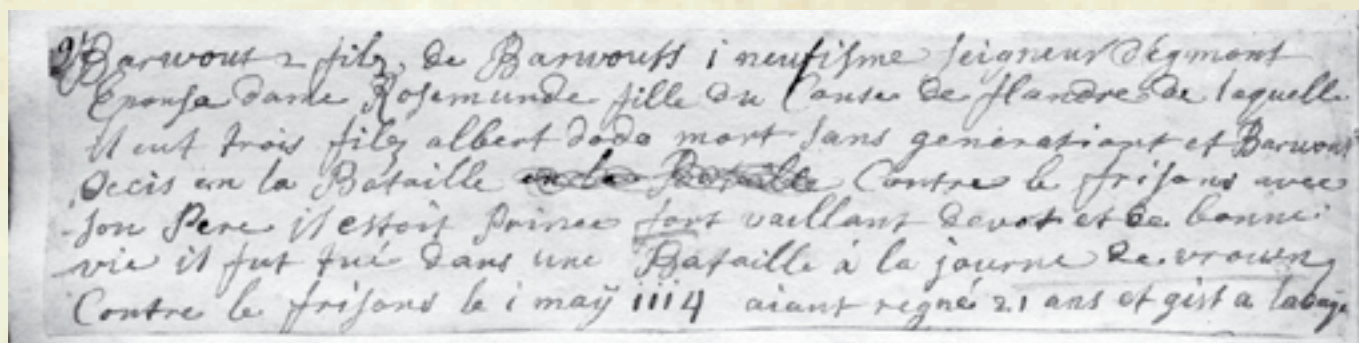 9 Barwout 2 filz de Barwouts i neufisme seigneur d'egmont
Epousa dame Rosemunde fille du Conse de flandre de laquelle
il eut trois filz albert dodo mort sans generationt et Barwout
decis en la Bataille en la Bataille Contre le frisons avec
son Pere il estoit Prince fort vaillant devot et de bonne
vie il fut tué dans une Bataille á la journe de vrouen
Contre le frisons le i maÿ iiii4 aiant regné 21 ans et gist a labaÿe